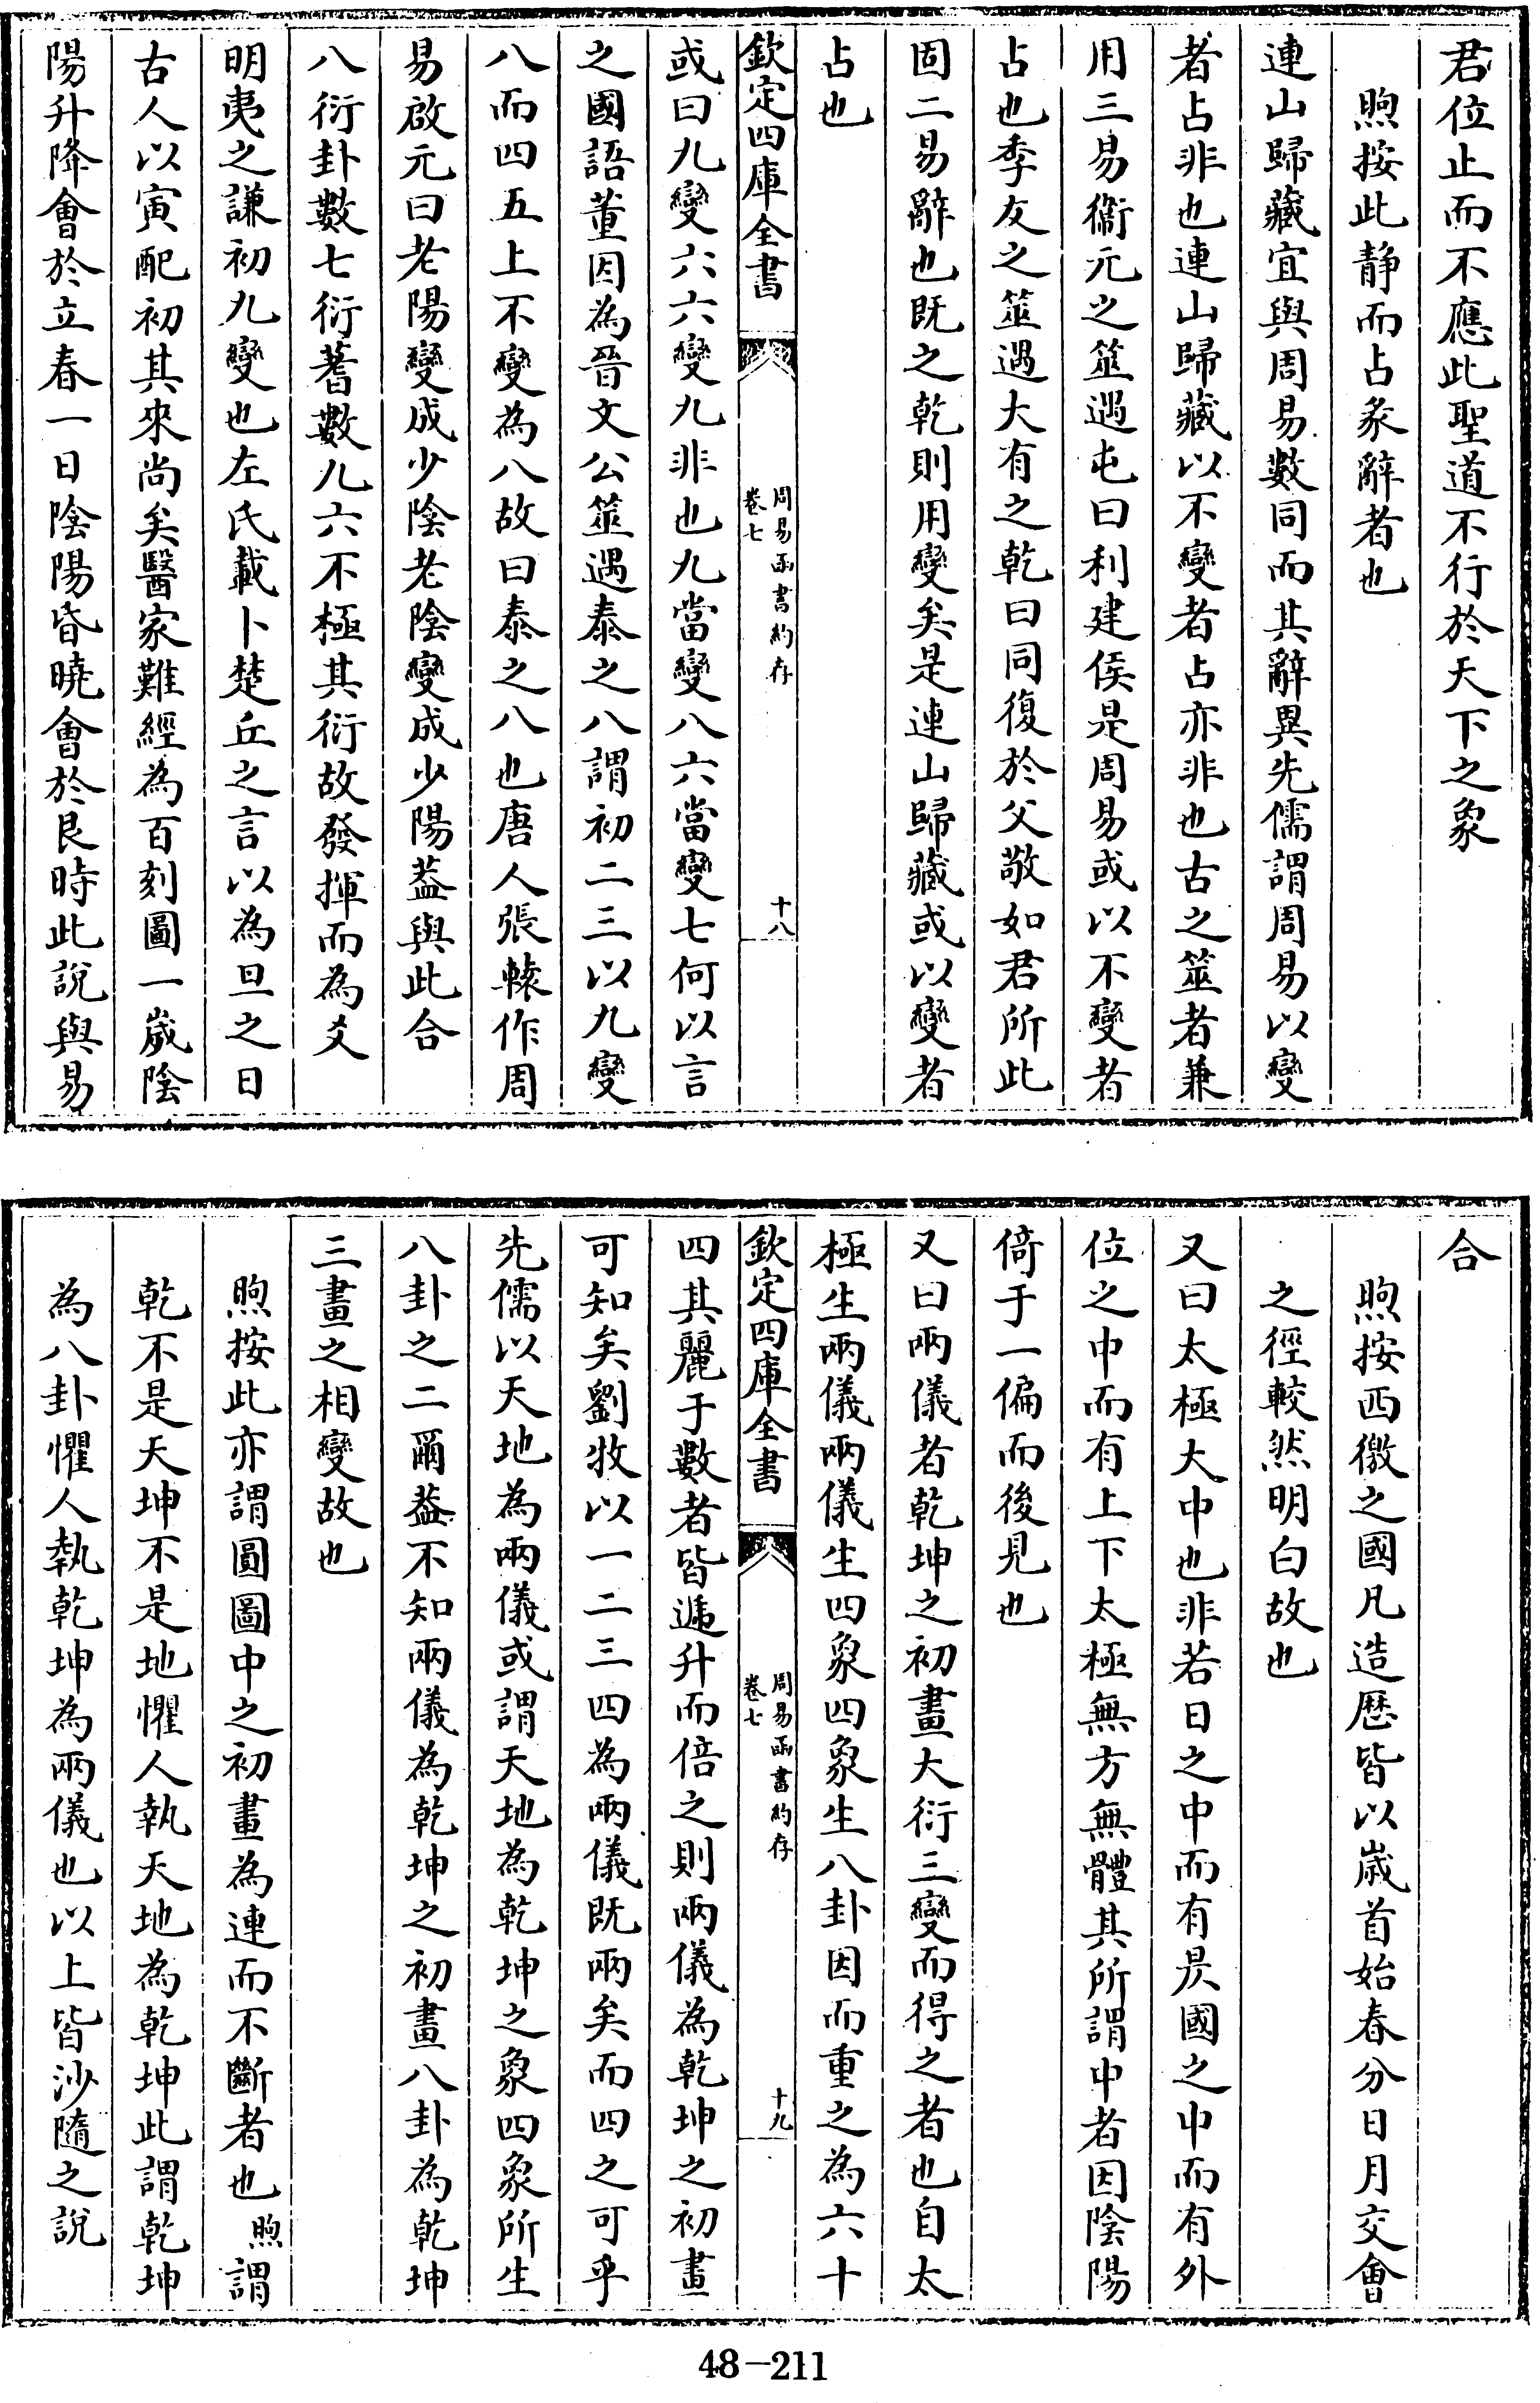 君位止而不應此聖道不行於天下之象
煦按此静而占彖辭者也
連山歸藏宜與周易數同而其辭異先儒謂周易以變
者占非也連山歸藏以不變者占亦非也古之筮者兼
用三易衞元之筮遇屯曰利建侯是周易或以不變者
占也季友之筮遇大有之乾曰同復於父敬如君所此
固二易辭也既之乾則用變矣是連山歸藏或以變者
占也
欽定四庫全書
周易函書約存
卷七
十八
或曰九變六六變九非也九當變八六當變七何以言
之國語董因為晉文公筮遇泰之八謂初二三以九變
八而四五上不變為八故曰泰之八也唐人張轅作周
易啟元曰老陽變成少陰老陰變成少陽葢與此合
八衍卦數七衍蓍數九六不極其衍故發揮而為爻
明夷之謙初九變也左氏載卜楚丘之言以為旦之日
古人以寅配初其來尚矣醫家難經為百刻圖一歲陰
陽升降會於立春一日陰陽昏曉會於艮時此說與易
合
煦按西徼之國凡造厯皆以歲首始春分日月交會
之徑較然明白故也
又曰太極大中也非若日之中而有昃國之中而有外
位之中而有上下太極無方無體其所謂中者因陰陽
倚于一偏而後見也
又曰兩儀者乾坤之初畫大衍三變而得之者也自太
極生兩儀兩儀生四象四象生八卦因而重之為六十
欽定四庫全書
周易函書約存
卷七
十九
四其麗于數者皆遞升而倍之則兩儀為乾坤之初畫
可知矣劉牧以一二三四為兩儀既兩矣而四之可乎
先儒以天地為兩儀或謂天地為乾坤之象四象所生
八卦之二爾葢不知兩儀為乾坤之初畫八卦為乾坤
三畫之相變故也
煦按此亦謂圓圖中之初畫為連而不斷者也煦謂
乾不是天坤不是地懼人執天地為乾坤此謂乾坤
為八卦懼人執乾坤為兩儀也以上皆沙隨之説
48-211